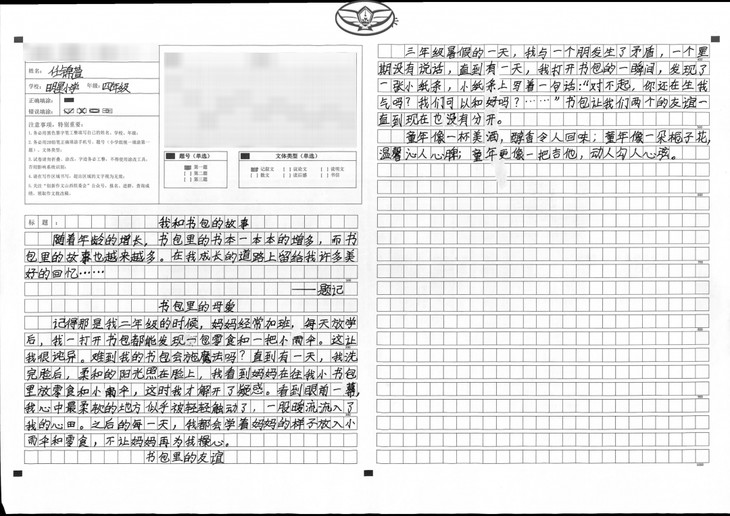 姓名：
学校：明星小学 年级：四年级
正确填涂：
错误填涂：
注意事项，特别重要：
题号（单选）
第一题
第二题
第三题
文体类型（单选）
记叙文
议论文
说明文
散文
读后感
书信
标题：我和书包的故事
随着年龄的增长，书包里的书本一本本的增多，而书
包里的故事也越来越多。在我成长的道路上留给我许多美
好的回忆……
——题记
书包里的母爱
记得那是我二年级的时候，妈妈经常加班，每天放学
后，我一打开书包都能发现一包零食和一把小雨伞。这让
我很诧异。难到我的书包会施魔法吗？直到有一天，我洗
完脸后，柔和的阳光照在脸上，我看到妈妈在往我小书包
里放零食和小雨伞，这时我才解开了疑惑。看到眼前一幕，
我心中最柔软的地方似乎被轻轻触动了，一股暖流流入了
我的心田。之后的每一天，我都会学着妈妈的样子放入小
雨伞和零食，不让妈妈再为我操心。
书包里的友谊
三年级暑假的一天，我与一个朋友生了矛盾，一个星
期没有说话，直到有一天，我打开书包的一瞬间，发现了
一张小纸条，小纸条上写着一句话：“对不起，你还在生我
气吗？我们可以和好吗？……”书包让我们两个的友谊一
直到现在也没有分开。
童年像一杯美酒，醇香令人回味；童年像一朵栀子花，
温馨沁人心脾；童年更像一把吉他，动人勾人心弦。